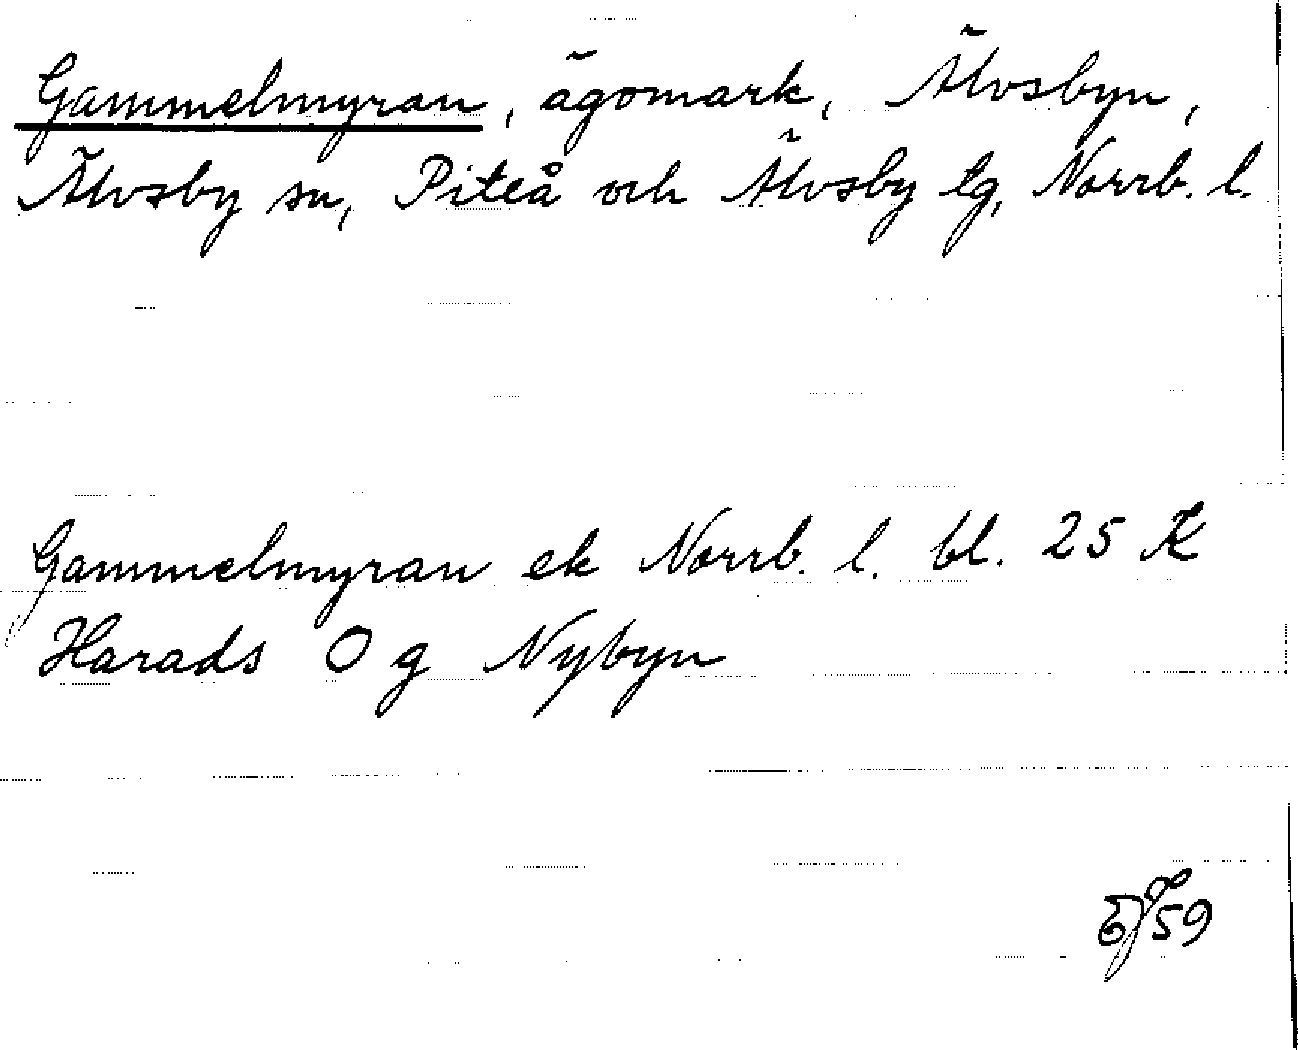 Gammelmyran, ägomark, Älvsbyn,
Älvsby sn, Piteå och Älvsby tg, Norrb. l.
Gammelmyran ek Norrb. l. bl. 25 K
Harads O g Nybyn
59